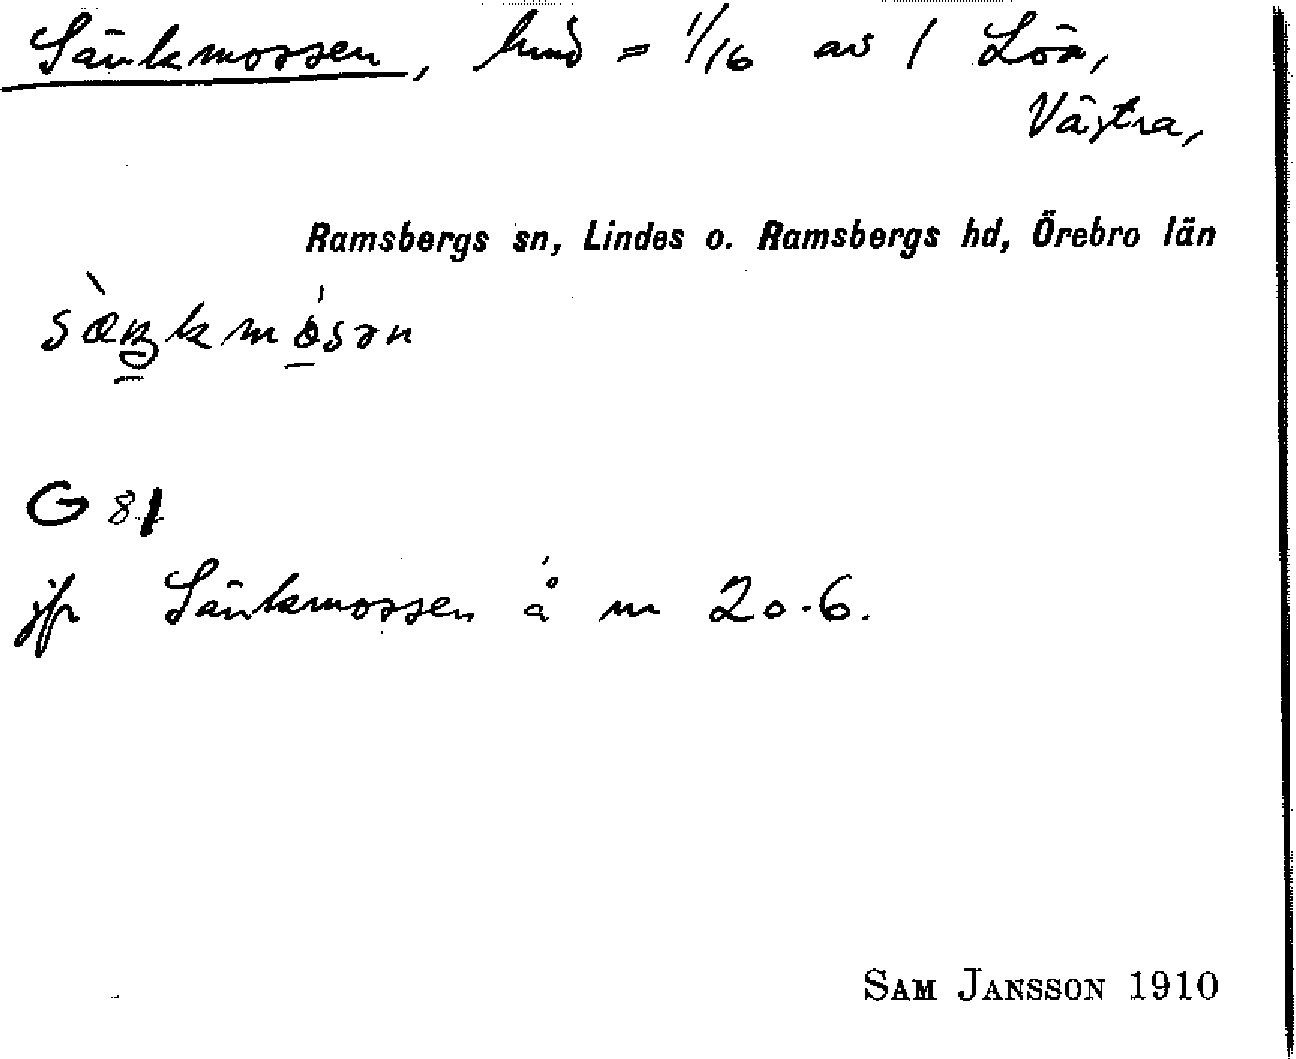 Sänkmossen, hmd = 1/16 av 1 Lön,
Västra,
Ramsbergs sn, Lindes o. Ramsbergs hd, Örebro län
G 81
jfr Sänkmossen å m 20.6.
SAM JANSSON 1910